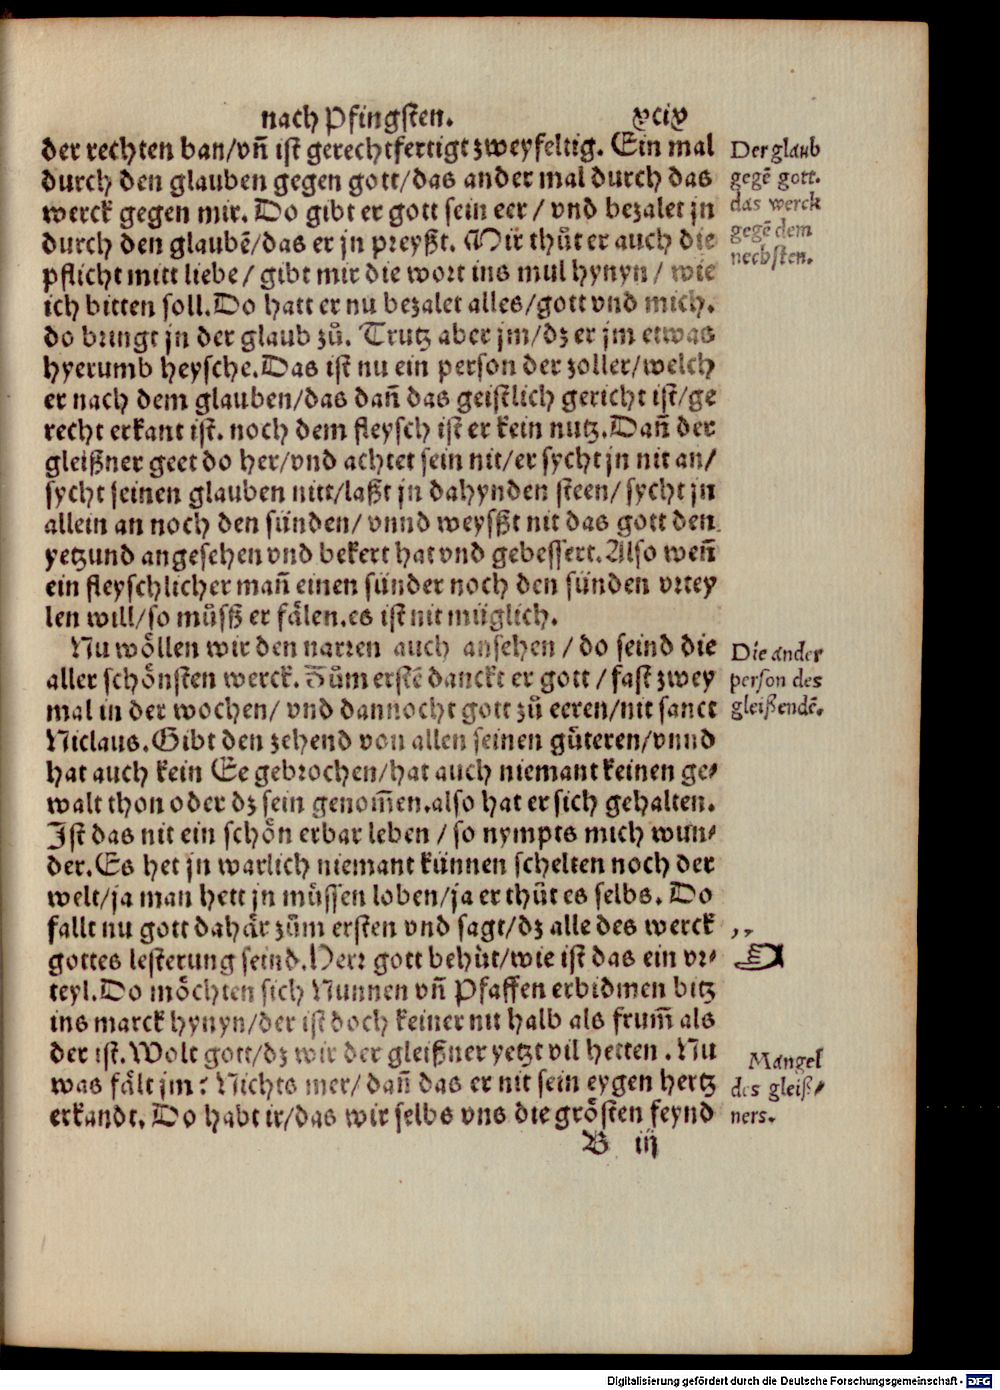 nach Pfingsten. xcix
der rechten ban/vñ ist gerechtfertigt zweyfeltig. Ein mal
durch den glauben gegen gott/das ander mal durch das
werck gegen mir. Do gibt er gott sein eer / vnd bezalet jn
durch den glaubẽ/das er jn preyßt. Mir thůt er auch die
pflicht mitt liebe / gibt mir die wort ins mul hynyn / wie
ich bitten soll. Do hatt er nu bezalet alles/gott vnd mich.
do bringt jn der glaub zů. Trutz aber jm/dz er jm etwas
hyerumb heysche. Das ist nu ein person der zoller/welch
er nach dem glauben/das dañ das geistlich gericht ist/ge
recht erkant ist. noch dem fleysch ist er kein nutz. Dañ der
gleißner geet do her/vnd achtet sein nit/er sycht jn nit an/
sycht seinen glauben nitt/laßt jn dahynden steen/ sycht jn
allein an noch den sünden/ vnnd weyßt nit das gott den
yetzund angesehen vnd bekert hat vnd gebessert. Also weñ
ein fleyschlicher mañ einen sünder noch den sünden vrtey
len will/so můß er fälen.es ist nit müglich.
Nu wöllen wir den narren auch ansehen / do seind die
aller schönsten werck. Zům erstẽ danckt er gott / fast zwey
mal in der wochen/ vnd dannocht gott zů eeren/nit sanct
Niclaus. Gibt den zehend von allen seinen güteren/vnnd
hat auch kein Ee gebrochen/hat auch niemant keinen ge⸗
walt thon oder dz sein genom̃en.also hat er sich gehalten.
Ist das nit ein schön erbar leben / so nympts mich wun⸗
der. Es het jn warlich niemant künnen schelten noch der
welt/ja man hett jn müssen loben/ja er thůt es selbs. Do
fallt nu gott dahär zům ersten vnd sagt/dz alle des werck
gottes lesterung seind. Herr gott behůt/wie ist das ein vr⸗
teyl. Do möchten sich Nunnen vñ Pfaffen erbidmen bitz
ins marck hynyn/der ist doch keiner nit halb als frum̃ als
der ist. Wolt gott/dz wir der gleißner yetzt vil hetten . Nu
was fält jm? Nichts mer/ dañ das er nit sein eygen hertz
erkandt. Do habt ir/das wir selbs vns die grösten feynd
B iij
Der glaub
gegẽ gott.
das werck
gegẽ dem
nechsten.
Die ander
person des
gleißendẽ.
,,
Mangel
des gleiß⸗
ners.
Digitalisierung gefördert durch die Deutsche Forschungsgemeinschaft - DFG